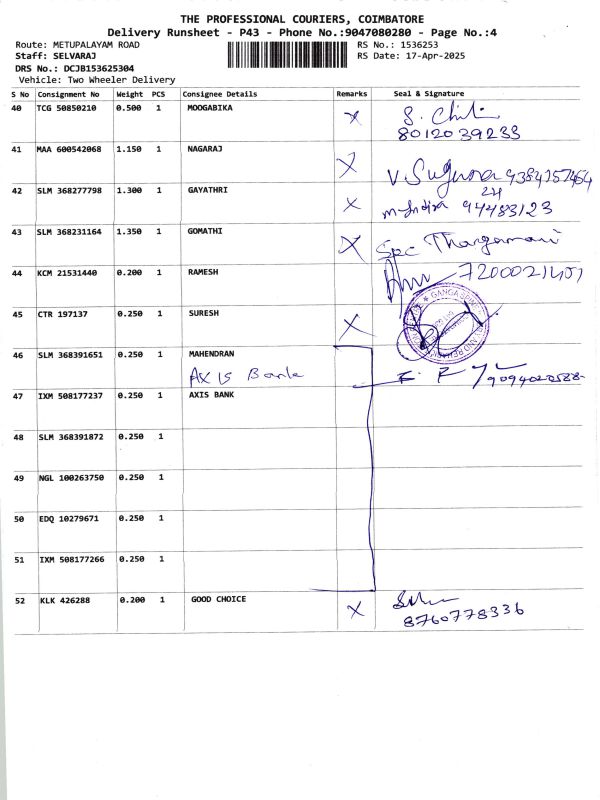 THE PROFESSIONAL COURIERS, COIMBATORE
Delivery Runsheet - P43 - Phone No.:9047080280 - Page No.:4
Route: METUPALAYAM ROAD RS No.: 1536253
Staff: SELVARAJ RS Date: 17-Apr-2025
DRS No.: DCJB153625304
Vehicle: Two Wheeler Delivery
S No Consignment No Weight PCS Consignee Details Remarks Seal & Signature
40 TCG 50850210 0.500 1 MOOGABIKA X
8012039233
41 MAA 600542068 1.150 1 NAGARAJ X
42 SLM 368277798 1.300 1 GAYATHRI X 94483123
43 SLM 368231164 1.350 1 GOMATHI X
44 KCM 21531440 0.200 1 RAMESH
45 CTR 197137 0.250 1 SURESH X
46 SLM 368391651 0.250 1 MAHENDRAN
AXIS Bank
47 IXM 508177237 0.250 1 AXIS BANK
48 SLM 368391872 0.250 1
49 NGL 100263750 0.250 1
50 EDQ 10279671 0.250 1
51 IXM 508177266 0.250 1
52 KLK 426288 0.200 1 GOOD CHOICE X
8760778336